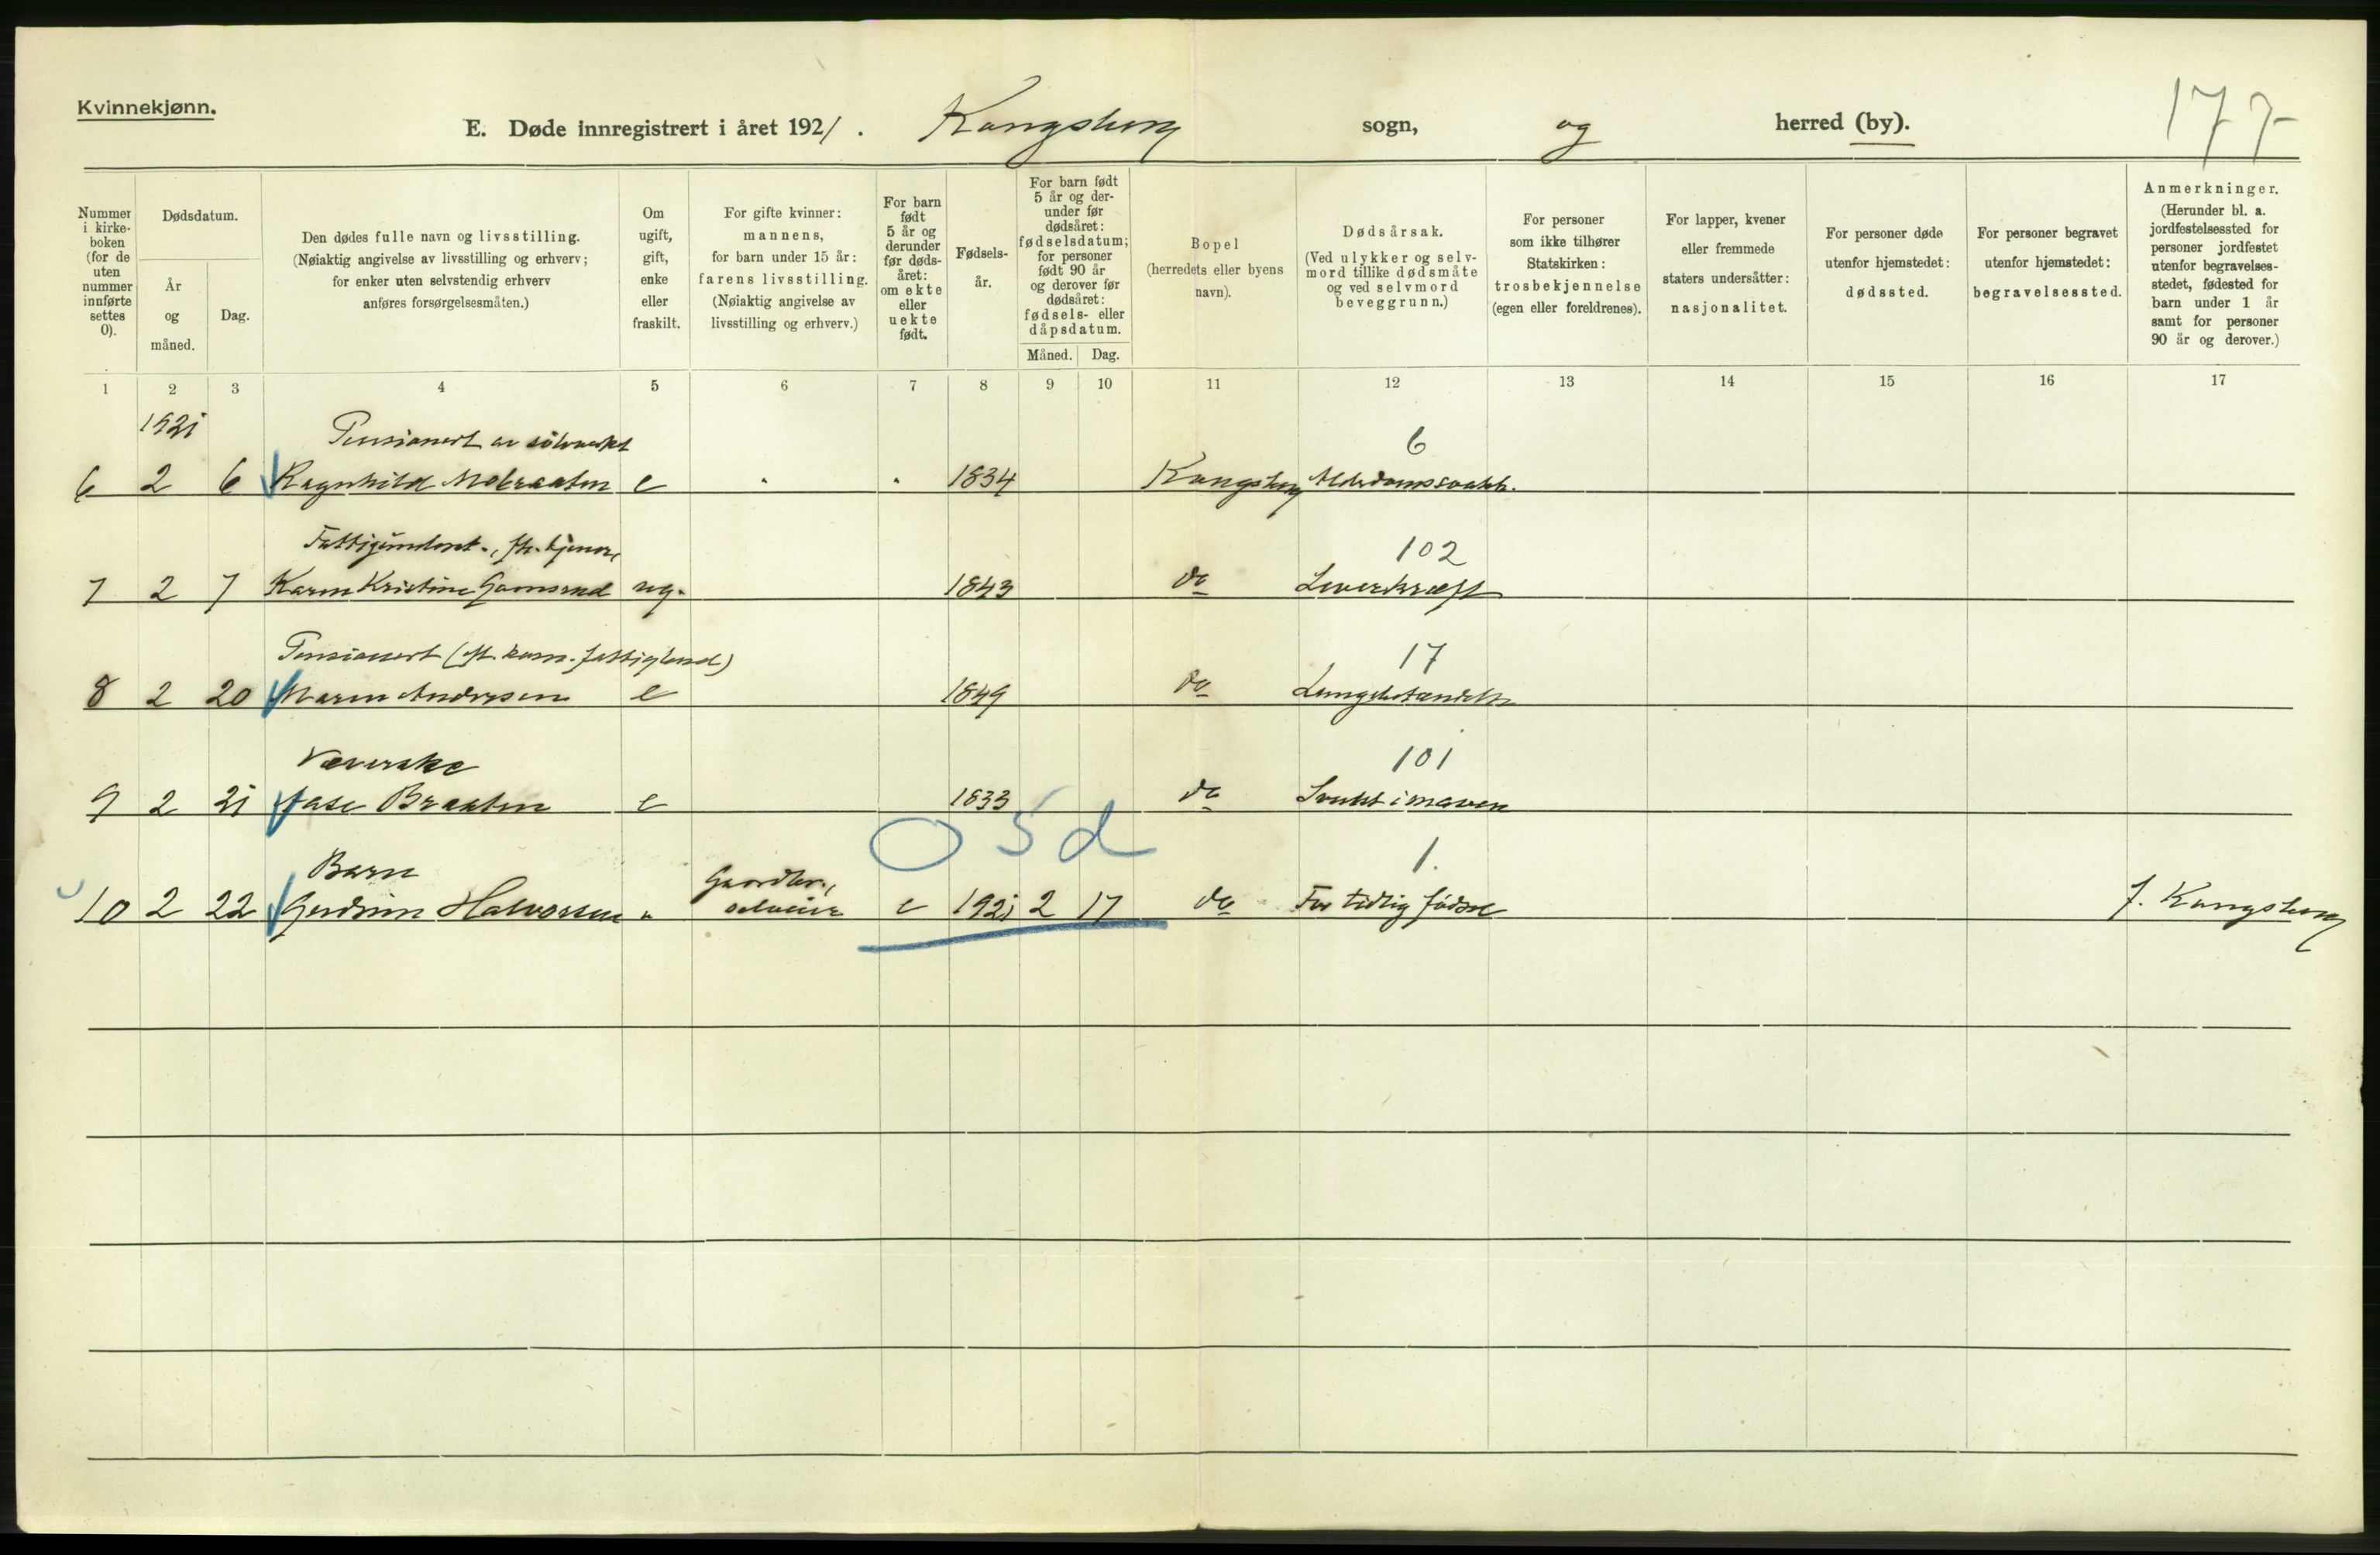 Kvinnekjønn.
E. Døde innregistrert i året 1921. Kongsberg sogn, og herred (by). 177
Nummer i kirke- boken (for de uten nummer innførte settes 0).
Dødsdatum.
År og måned.
Dag.
Den dødes fulle navn og livsstilling.
(Nøiaktig angivelse av livsstilling og erhverv;
for enker uten selvstendig erhverv
anføres forsørgelsesmåten.)
Om ugift, gift, enke eller fraskilt.
For gifte kvinner:
mannens,
for barn under 15 år:
farens livsstilling.
(Nøiaktig angivelse av
livsstilling og erhverv.)
For barn født 5 år og derunder før døds- året: om ekte eller uekte født.
Fødsels- år.
For barn født 5 år og der- under før dødsåret: fødselsdatum; for personer født 90 år og derover før dødsåret: fødsels- eller dåpsdatum.
Måned. Dag.
Bopel
(herredets eller byens
navn).
Dødsårsak.
(Ved ulykker og selv-
mord tillike dødsmåte
og ved selvmord
beveggrunn.)
For personer
som ikke tilhører
Statskirken:
trosbekjennelse
(egen eller foreldrenes).
For lapper, kvener
eller fremmede
staters undersåtter:
nasjonalitet.
For personer døde
utenfor hjemstedet:
dødssted.
For personer begravet
utenfor hjemstedet:
begravelsessted.
Anmerkninger.
(Herunder bl. a.
jordfestelsessted for
personer jordfestet
utenfor begravelses-
stedet, fødested for
barn under 1 år
samt for personer
90 år og derover.)
1 2 3 4 5 6 7 8 9 10 11 12 13 14 15 16 17
1921 Pensionert av sølvverket 6
6 2 6 Ragnhild Mobraaten e " " 1834 Kongsberg Alderdomssvakh.
Fattigunderst., fh. tjener 102
7 2 7 Karen Kristine Gamsrud ug. 1843 do Leverkræft
Pensionert (st. kom. fattiglend) 17
8 2 20 Maren Andersen e 1849 do Lungebetændelse
Væverske 101
9 2 21 Aase Braaten e 1833 do Svulst i maven
0 5 d
Barn Gaardbr., 1.
10 2 22 Gudrun Halvorsen " selveier e 1921 2 17 do For tidlig fødsel f. Kongsberg